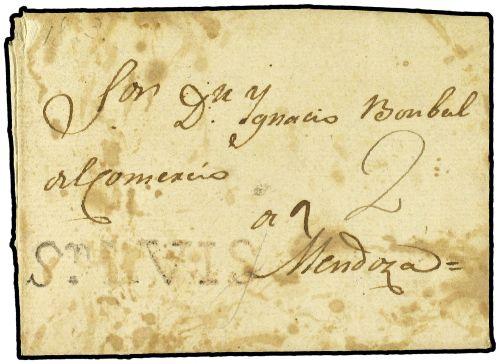 Sor Dn Y
Ygnacio Bonbal
del Comercio
2
a
Mendoza=
SnLVIS